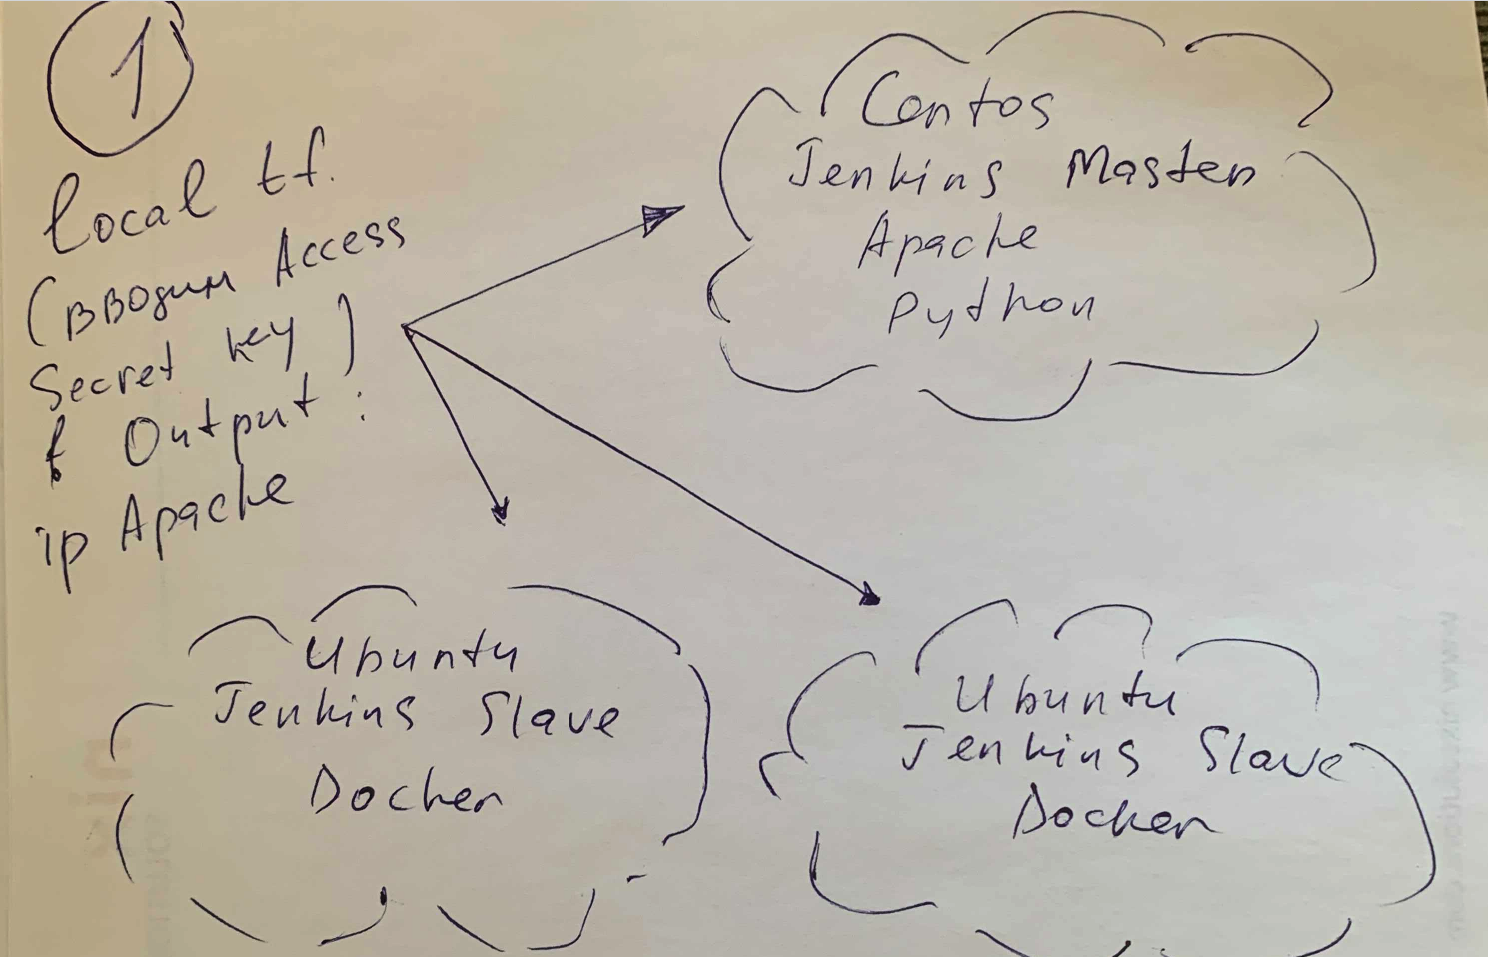 1
Local tf.
(вводим Access
Secret key)
Output:
ip Apache
Centos
Jenkins Master
Apache
Python
Ubuntu
Jenkins Slave
Docker
Ubuntu
Jenkins Slave
Docker